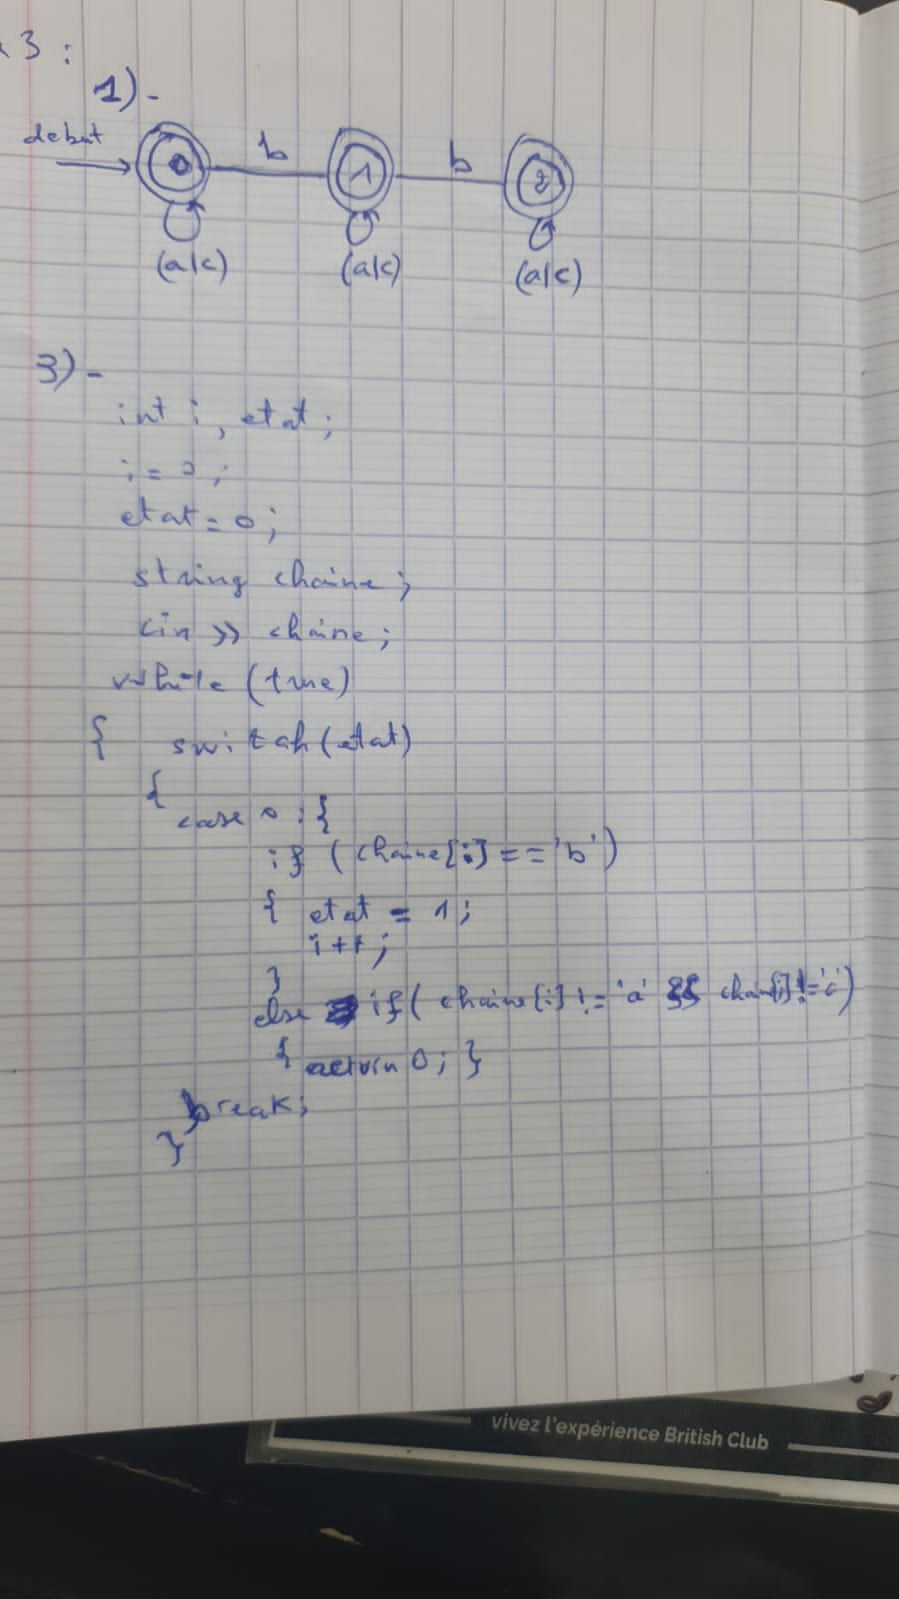 3 :
1)-
debut
b
b
0
1
2
(a|c)
(a|c)
(a|c)
3)-
int i, etat;
i = 0;
etat = 0;
string chaine;
cin >> chaine;
while (true)
{ switch(etat)
{
case 0 : {
if ( chaine[i] == 'b')
{ etat = 1;
i++;
}
else if( chaine[i] != 'a' && chaine[i] != 'c')
{ return 0; }
break;
}
vivez l'expérience British Club